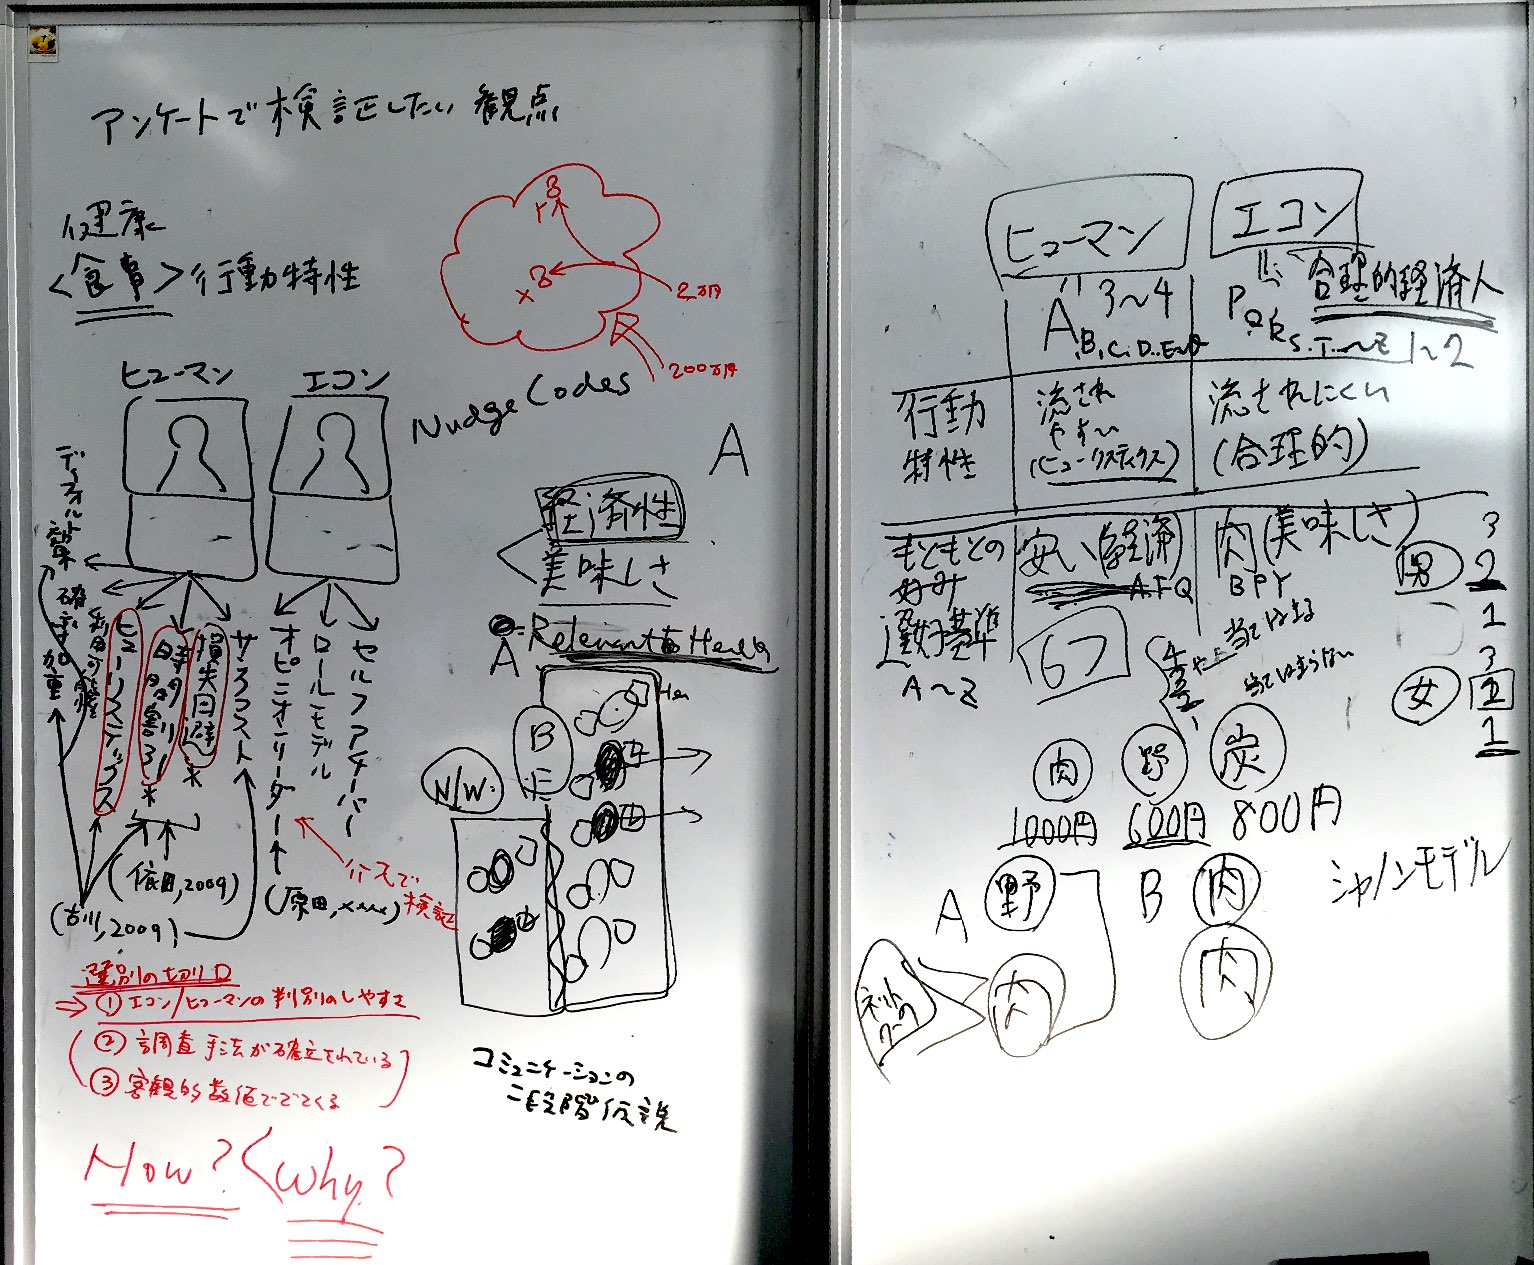 アンケートで検証したい観点
健康
<食事>行動特性
2万円
200万円
ヒューマン
エコン
Nudge Codes
A
経済性
美味しさ
Relevant
A
B
N/W.
デフォルト
確実
加重
利用可能性
ヒューリスティックス
時間割引
*
損失回避
*
サンクコスト
オピニオンリーダー
ロールモデル
セルフアイデンティ
(依田,2009)
(古川,2009)
(原田,xxxx)
検証
選別の切り口
① エコン/ヒューマンの判別のしやすさ
② 調査手法が確立されている
③ 客観的数値ででてくる
How? < Why?
コミュニケーションの
二段階仮説
ヒューマン
エコン
合理的経済人
3~4
A
B,C,D..E~O
P
Q
R S.T.~Z 1~2
行動
特性
流され
やすい
流されにくい
(合理的)
もともとの
好み
選好基準
A~Z
安い(経済)
A.F.Q
肉(美味しさ)
B P Y
6つ
当てはまる
当てはまらない
4
3
2
1
男
3
2
1
女
3
2
1
肉
野
炭
1000円
600円
800円
A
野
肉
B
肉
肉
ネットワーク
シャノンモデル